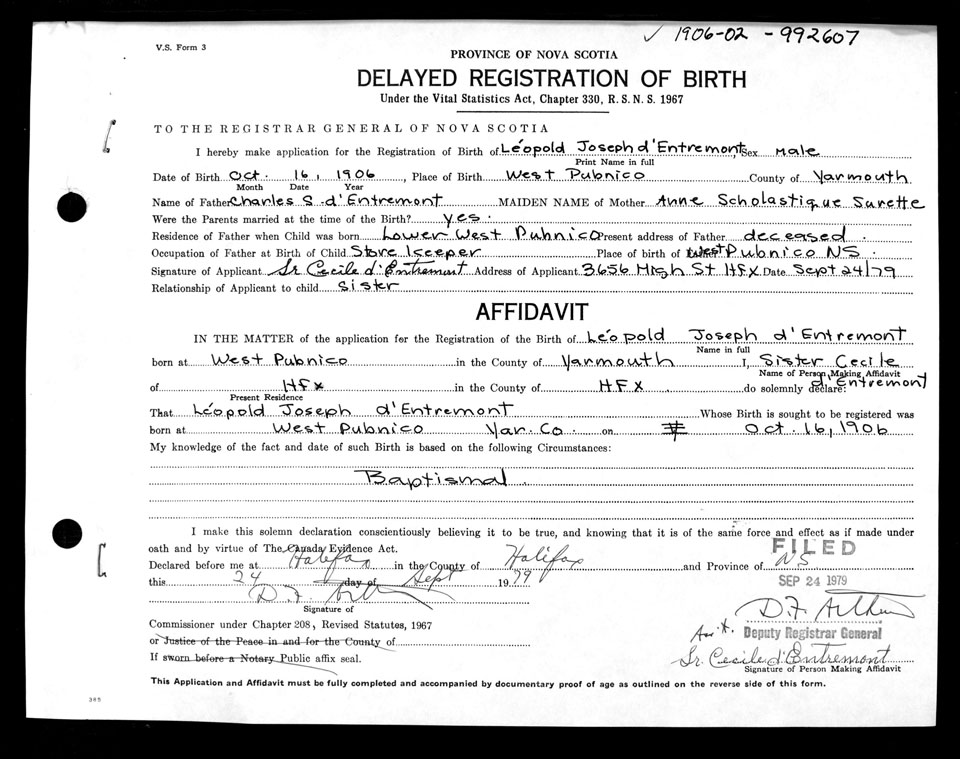 ✓ 1906-02 - 992607
V.S. Form 3
PROVINCE OF NOVA SCOTIA
DELAYED REGISTRATION OF BIRTH
Under the Vital Statistics Act, Chapter 330, R.S.N.S. 1967
TO THE REGISTRAR GENERAL OF NOVA SCOTIA
I hereby make application for the Registration of Birth of Léopold Joseph d'Entremont, Sex Male
Print Name in full
Date of Birth Oct. 16, 1906, Place of Birth West Pubnico County of Yarmouth
Month Date Year
Name of Father Charles S d'Entremont MAIDEN NAME of Mother Anne Scholastique Surette
Were the Parents married at the time of the Birth? yes.
Residence of Father when Child was born Lower West Pubnico Present address of Father deceased.
Occupation of Father at Birth of Child Store Keeper Place of birth of West Pubnico NS.
Signature of Applicant Sr Cecile d'Entremont Address of Applicant 3656 High St Hfx Date Sept 24/79
Relationship of Applicant to child Sister
AFFIDAVIT
IN THE MATTER of the application for the Registration of the Birth of Léopold Joseph d'Entremont
Name in full
born at West Pubnico in the County of Yarmouth I, Sister Cecile
Name of Person Making Affidavit
of Hfx in the County of HFX do solemnly declare: d'Entremont
Present Residence
That Léopold Joseph d'Entremont Whose Birth is sought to be registered was
born at West Pubnico Yar. Co on Oct. 16, 1906
My knowledge of the fact and date of such Birth is based on the following Circumstances:
Baptismal
I make this solemn declaration conscientiously believing it to be true, and knowing that it is of the same force and effect as if made under
oath and by virtue of The Canada Evidence Act.
FILED
Declared before me at Halifax in the County of Halifax and Province of NS
this 24 day of Sept 1979
SEP 24 1979
Signature of
Commissioner under Chapter 208, Revised Statutes, 1967
or Justice of the Peace in and for the County of
Deputy Registrar General
If sworn before a Notary Public affix seal.
Sr. Cecile d'Entremont
Signature of Person Making Affidavit
This Application and Affidavit must be fully completed and accompanied by documentary proof of age as outlined on the reverse side of this form.
385